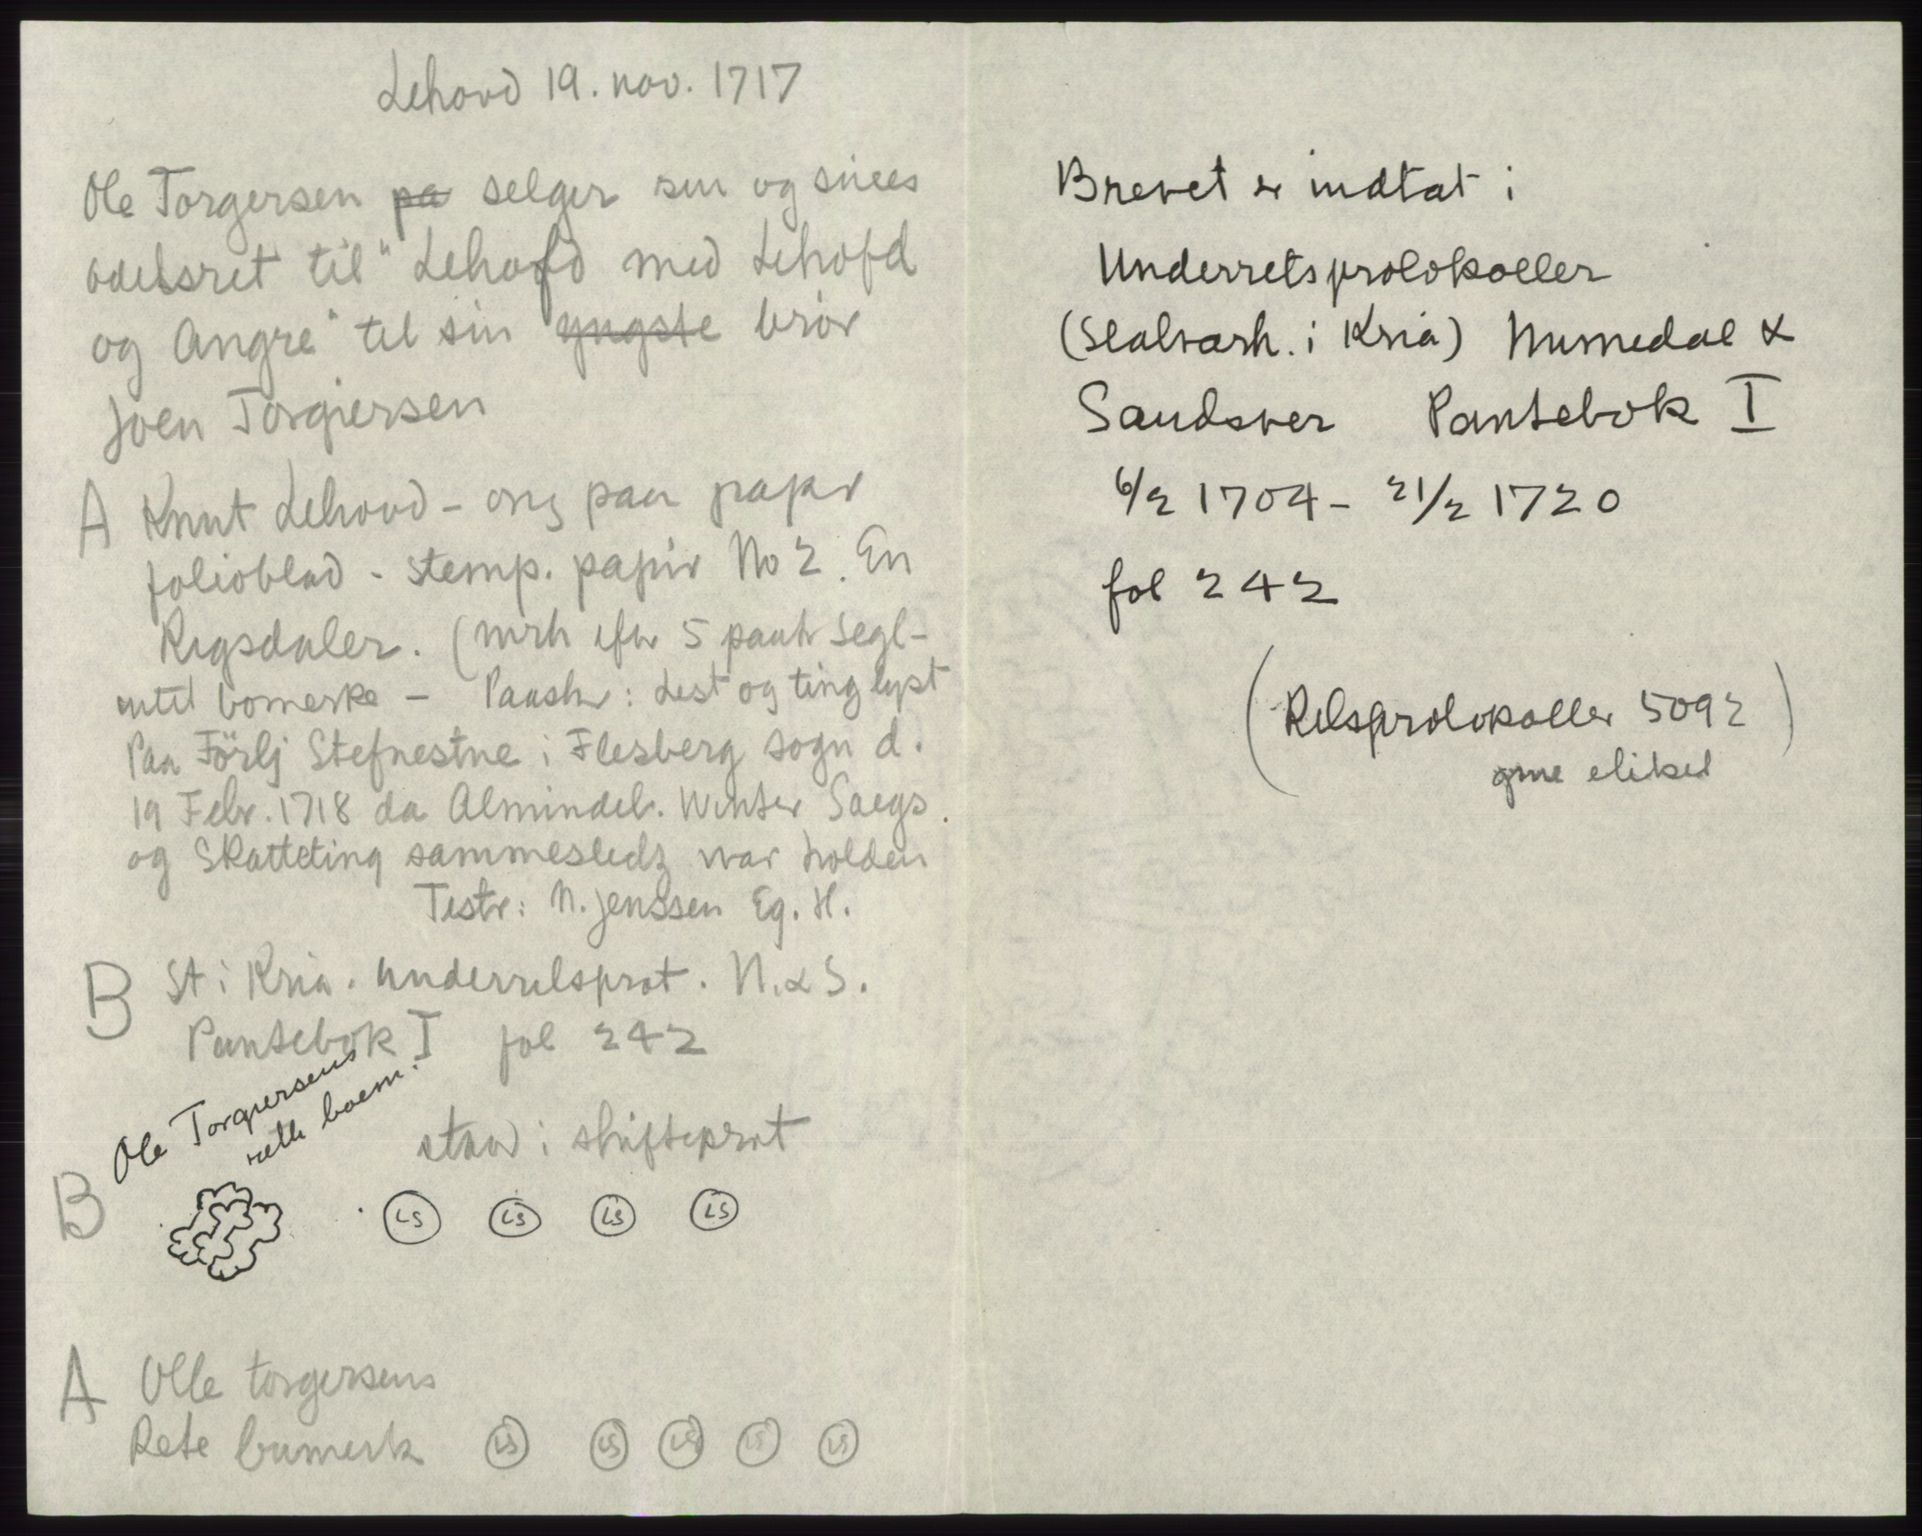 Lehovd 19. nov. 1717
Ole Torgersen pa selger sin og sines
odelsret til "Lehofd med Lehofd
og Angre" til sin yngste bror
Joen Torgiersen
A Knut Lehovd - orig paa papir
folioblad - stemp. papir No 2. En
Rigsdaler. (mrk efter 5 segl-
bomerke - Paaskr: Lest og tinglyst
Paa Förlj Stefnestne i Flesberg sogn d.
19 Febr. 1718 da Almindel. Winter Saegs.
og Skatteting sammesledz war holden
Testr: N. Jenssen Eg. H.
B St i Kria. Underretsprot. N. & S.
Pantebok I fol 242
Ole Torgiersens
rette boem.
staar i skifteprot
B LS LS LS LS
A Olle torgersens
Rete bumerk LS LS LS LS LS
Brevet er indtat i
Underretsprotokoller
(Statsark. i Kria) Numedal &
Sandsver Pantebok I
6/2 1704 - 21/2 1720
fol 242
(Retsprotokoller 5092
etiket)